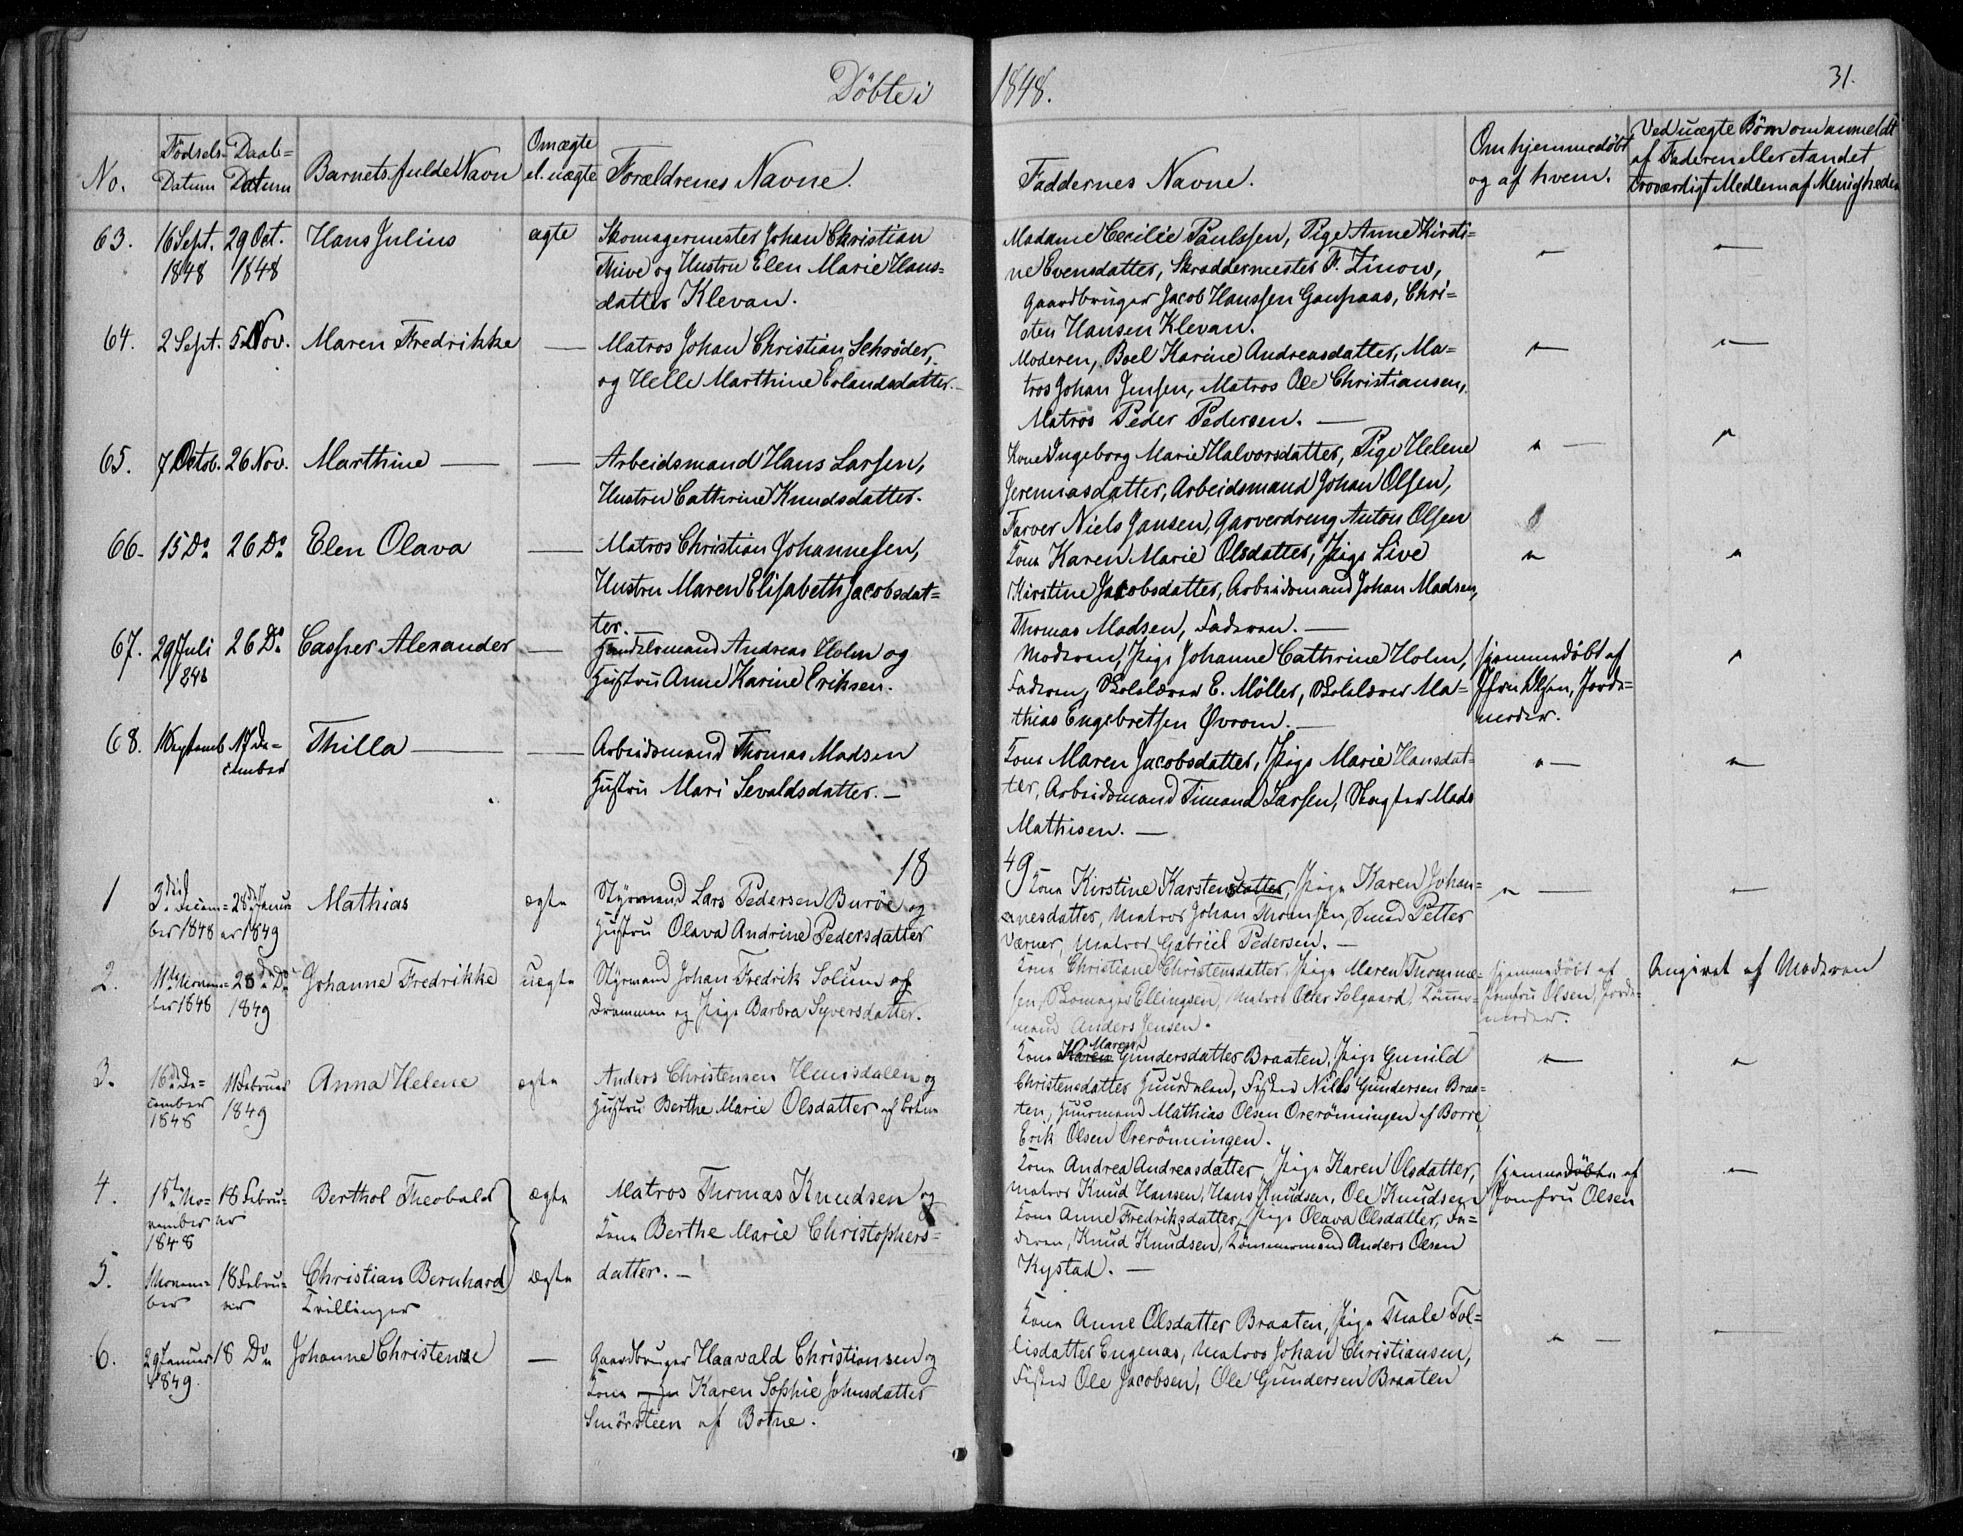 Döbte i 1848. 31.
No. | Födsels- Datum | Daab- Datum | Barnets fulde Navn | Om ægte el. uægte | Forældrenes Navne. | Faddernes Navne. | Om hjemmedöbt og af hvem. | Ved uægte Börn om anmeldt af Faderen eller et andet troværdigt Medlem af Menigheden
63. 16 Sept. 1848 29 Oct. 1848 Hans Julius ægte
Skomagermester Johan Christian
Thive og Hustru Elen Marie Hans=
datter Klevan.
Madame Cecilie Paulssen, Pige Anne Kirsti-
ne Evensdatter, Skræddermester F. Zinow,
Gaardbruger Jacob Hanssen Gaupaas, Chri=
sten Hansen Klevan.
64. 2 Sept. 5 Nov. Maren Fredrikke —
Matros Johan Christian Schröder,
og Helle Marthine Erlandsdatter.
Moderen, Boel Karine Andreasdatter, Ma=
tros Johan Jensen, Matros Ole Christiansen,
Matros Peder Pedersen. —
65. 7 Octob. 26 Nov. Marthine — —
Arbeidsmand Hans Larsen,
Hustru Cathrine Knudsdatter.
Kone Ingeborg Marie Halvorsdatter, Pige Helene
Jeremiasdatter, Arbeidsmand Johan Olsen,
Farver Niels Jansen, Garverdreng Anton Olsen
66. 15 Do 26 Do Elen Olava —
Matros Christian Johannesen,
Hustru Maren Elisabeth Jacobsdat=
ter.
Kone Karen Marie Olsdatter, Pige Live
Kirstine Jacobsdatter, Arbeidsmand Johan Madsen,
Thomas Madsen, Faderen. —
67. 29 Juli 1848 26 Do Casper Alexander —
Handelsmand Andreas Holm og
Hustru Anne Karine Eriksen.
Moderen, Pige Johanne Cathrine Holm,
Faderen, Skolelærer E. Möller, Skolelærer Ma=
thias Engebretsen Øvrom. —
hjemmedöbt af
Jfru Olsen, Jorde=
moder.
68. 1 Septemb 17 De=
cember Thilla — —
Arbeidsmand Thomas Madsen
Hustru Mari Sevaldsdatter. —
Kone Maren Jacobsdatter, Pige Marie Hansdat=
ter, Arbeidsmand Timand Larsen, Slagter Mads
Mathisen. —
1849
1 3die Decem=
ber 1848 28de Janu
ar 1849 Mathias ægte
Styrmand Lars Pedersen Buröe og
Hustru Olava Andrine Pedersdatter
Kone Kirstine Karstensdatter, Pige Karen Johan=
nesdatter, Matros Johan Thomsen, Smed Petter
Værner, Matros Gabriel Pedersen. —
2. 11te Novem=
ber 1848 28de Do
1849 Johanne Fredrikke uægte
Styrmand Johan Fredrik Solum af
Drammen og Pige Barbra Syversdatter.
Kone Christiane Christensdatter, Pige Maren Thomme=
sen, Skomager Ellingsen, Matros Otter Solgaard, Tömmer=
mand Anders Jensen.
hjemmedöbt af
Jomfru Olsen, Jorde=
moder.
Angivet af Moderen
3. 16de De=
cember
1848 11 Februar
1849 Anna Helene ægte
Anders Christensen og
Hustru Berthe Marie Olsdatter af Botne
Kone Karen Maren Gundersdatter Braaten, Pige Gunild
Christensdatter, Fisker Nills Gundersen Braa=
ten, Mathias Olsen Orerönningen af Borre,
Erik Olsen Orerönningen.
4. 1ste No=
vember
1848 18 Febru=
ar Berthol Theobald ægte
Matros Thomas Knudsen og
Kone Berthe Marie Christophers=
datter. —
Kone Andrea Andreasdatter, Pige Karen Olsdatter,
Matros Knud Hansen, Hans Knudsen, Ole Knudsen
hjemmedöbte af
Jomfru Olsen
5. 1 Novem=
ber 18 Febru=
ar Christian Bernhard
Tvillinger ægte
Kone Anne Fredriksdatter, Pige Olava Olsdatter, Fa=
deren, Knud Knudsen, Tömmermand Anders Olsen
Kystad. —
6. 29 Januar
1849 18 Do Johanne Christense —
Gaardbruger Haavald Christiansen og
Kone Karen Sophie Johnsdatter
Smörsteen af Botne.
Kone Anne Olsdatter Braaten, Pige Thale Tol=
lisdatter Engenæs, Matros Johan Christiansen,
Fisker Ole Jacobsen, Ole Gundersen Braaten